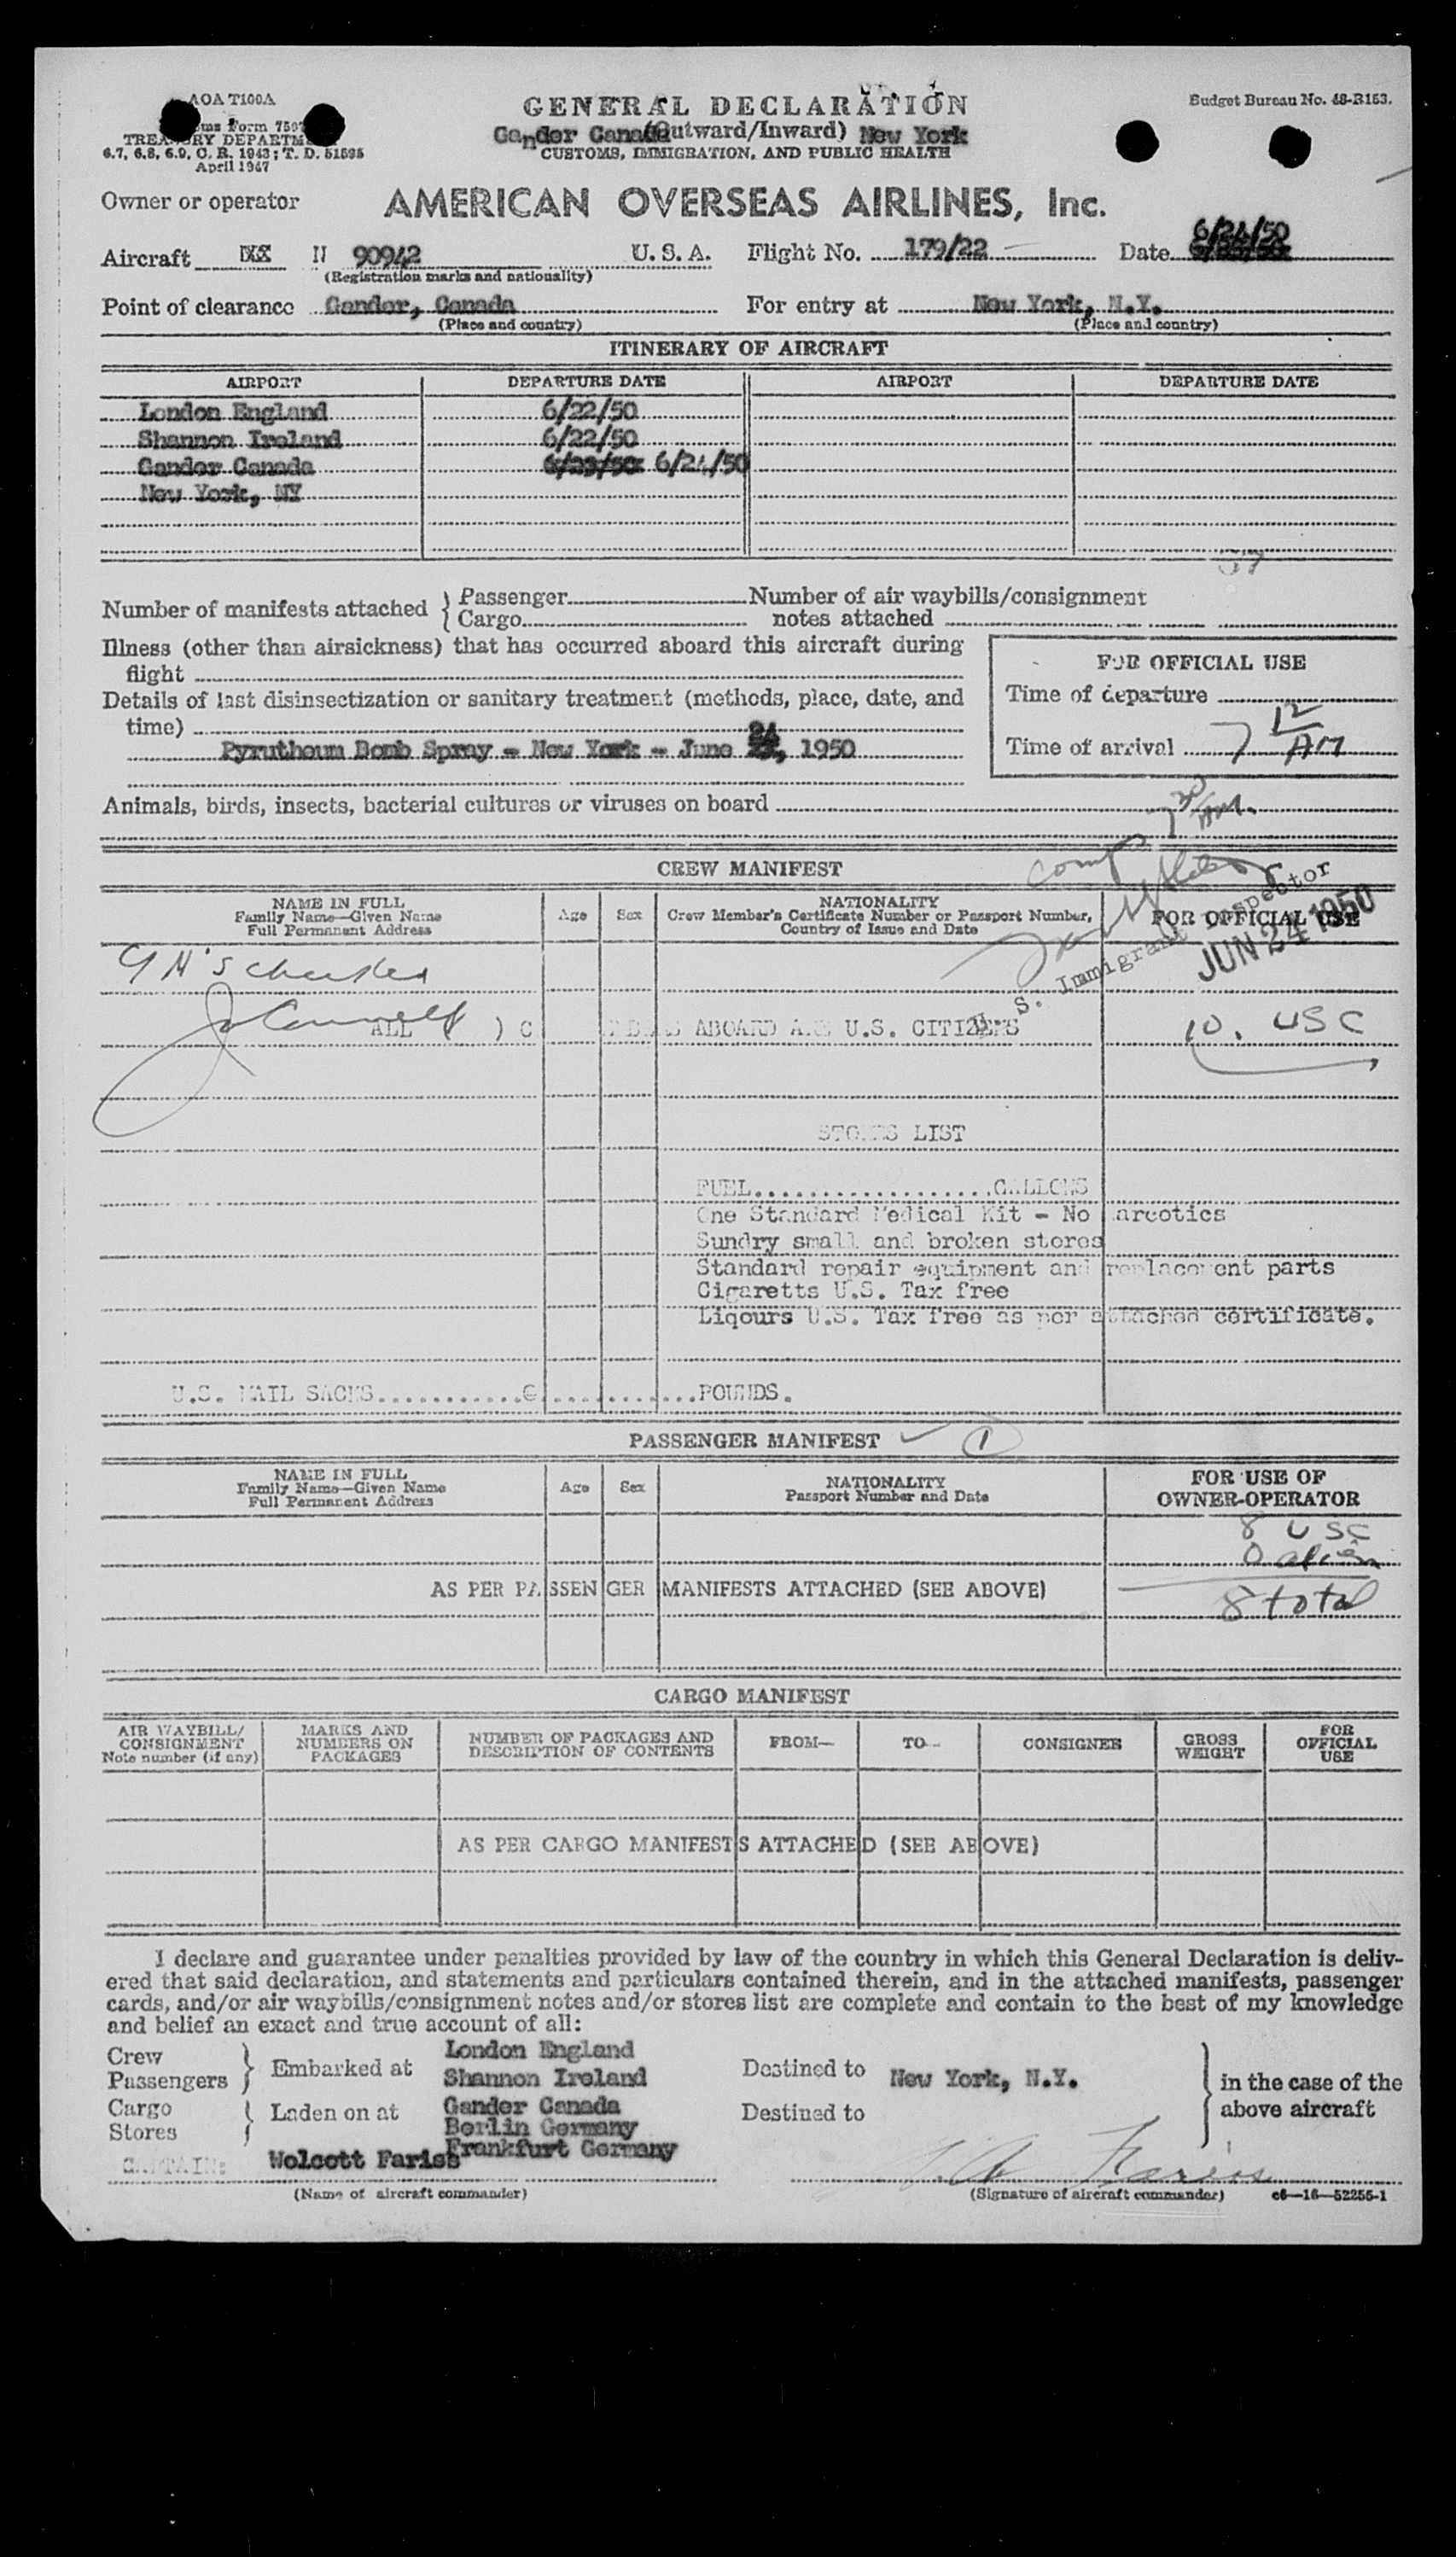 AOA T100A
GENERAL DECLARATION
Budget Bureau No. 48-B153.
Form 7507
Gander Canada (Outward/Inward) New York
TREASURY DEPARTMENT
CUSTOMS, IMMIGRATION, AND PUBLIC HEALTH
6.7, 6.8, 6.9, C. R. 1943; T. D. 51595
April 1947
Owner or operator AMERICAN OVERSEAS AIRLINES, Inc.
6/24/50
Aircraft N 90942 U. S. A. Flight No. 179/22 Date
(Registration marks and nationality)
Point of clearance Gander, Canada For entry at New York, N.Y.
(Place and country) (Place and country)
ITINERARY OF AIRCRAFT
AIRPORT DEPARTURE DATE AIRPORT DEPARTURE DATE
London England 6/22/50
Shannon Ireland 6/22/50
Gander Canada 6/23/50 6/24/50
New York, NY
57
Number of manifests attached { Passenger Number of air waybills/consignment
Cargo notes attached
Illness (other than airsickness) that has occurred aboard this aircraft during
flight
FOR OFFICIAL USE
Details of last disinsectization or sanitary treatment (methods, place, date, and
Time of departure
time)
Pyrutheum Bomb Spray - New York - June 24, 1950
Time of arrival 7 12 AM
Animals, birds, insects, bacterial cultures or viruses on board
Comp 7 30 AM.
CREW MANIFEST
NAME IN FULL
Family Name—Given Name
Full Permanent Address
Age Sex
NATIONALITY
Crew Member's Certificate Number or Passport Number,
Country of Issue and Date
FOR OFFICIAL USE
U. S. Immigrant Inspector
JUN 24 1950
ALL ) C ABOARD ARE U.S. CITIZENS
10. USC
STORES LIST
FUEL...................GALLONS
One Standard Medical Kit - No narcotics
Sundry small and broken stores
Standard repair equipment and replacement parts
Cigaretts U.S. Tax free
Liqours U.S. Tax free as per attached certificate.
U.S. MAIL SACKS............@............POUNDS.
PASSENGER MANIFEST 1
NAME IN FULL
Family Name—Given Name
Full Permanent Address
Age Sex
NATIONALITY
Passport Number and Date
FOR USE OF
OWNER-OPERATOR
8 USC
0 alien
AS PER PASSENGER MANIFESTS ATTACHED (SEE ABOVE)
8 total
CARGO MANIFEST
AIR WAYBILL/
CONSIGNMENT
Note number (if any)
MARKS AND
NUMBERS ON
PACKAGES
NUMBER OF PACKAGES AND
DESCRIPTION OF CONTENTS
FROM— TO— CONSIGNEE
GROSS
WEIGHT
FOR
OFFICIAL
USE
AS PER CARGO MANIFESTS ATTACHED (SEE ABOVE)
I declare and guarantee under penalties provided by law of the country in which this General Declaration is deliv-
ered that said declaration, and statements and particulars contained therein, and in the attached manifests, passenger
cards, and/or air waybills/consignment notes and/or stores list are complete and contain to the best of my knowledge
and belief an exact and true account of all:
Crew
Passengers } Embarked at London England
Shannon Ireland
Destined to New York, N.Y.
in the case of the
above aircraft
Cargo
Stores } Laden on at Gander Canada
Berlin Germany
Frankfurt Germany
Destined to
CAPTAIN: Wolcott Fariss
Fariss
(Name of aircraft commander) (Signature of aircraft commander) c6—16—52255-1